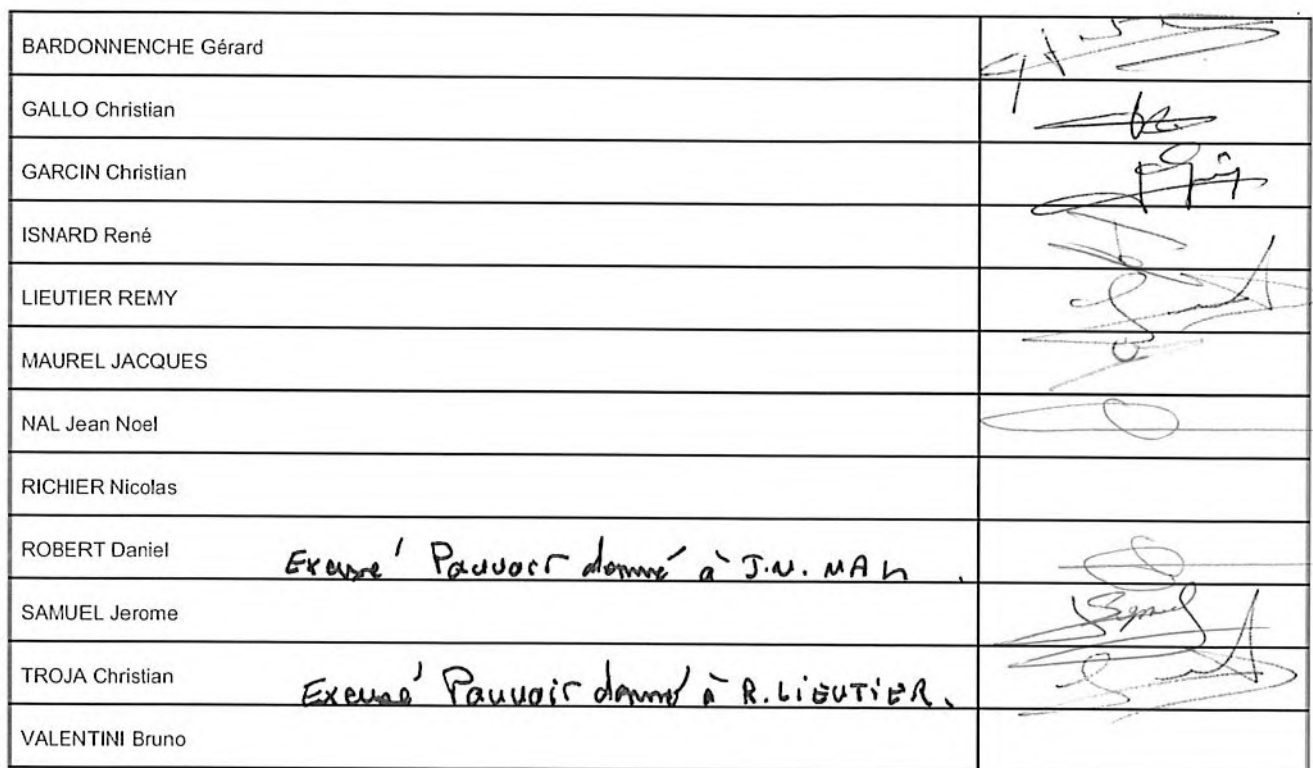 BARDONNENCHE Gérard
GALLO Christian
GARCIN Christian
ISNARD René
LIEUTIER REMY
MAUREL JACQUES
NAL Jean Noel
RICHIER Nicolas
ROBERT Daniel Excusé Pouvoir donné à J.N. NAL
SAMUEL Jerome
TROJA Christian Excusé Pouvoir donné à R. LIEUTIER.
VALENTINI Bruno